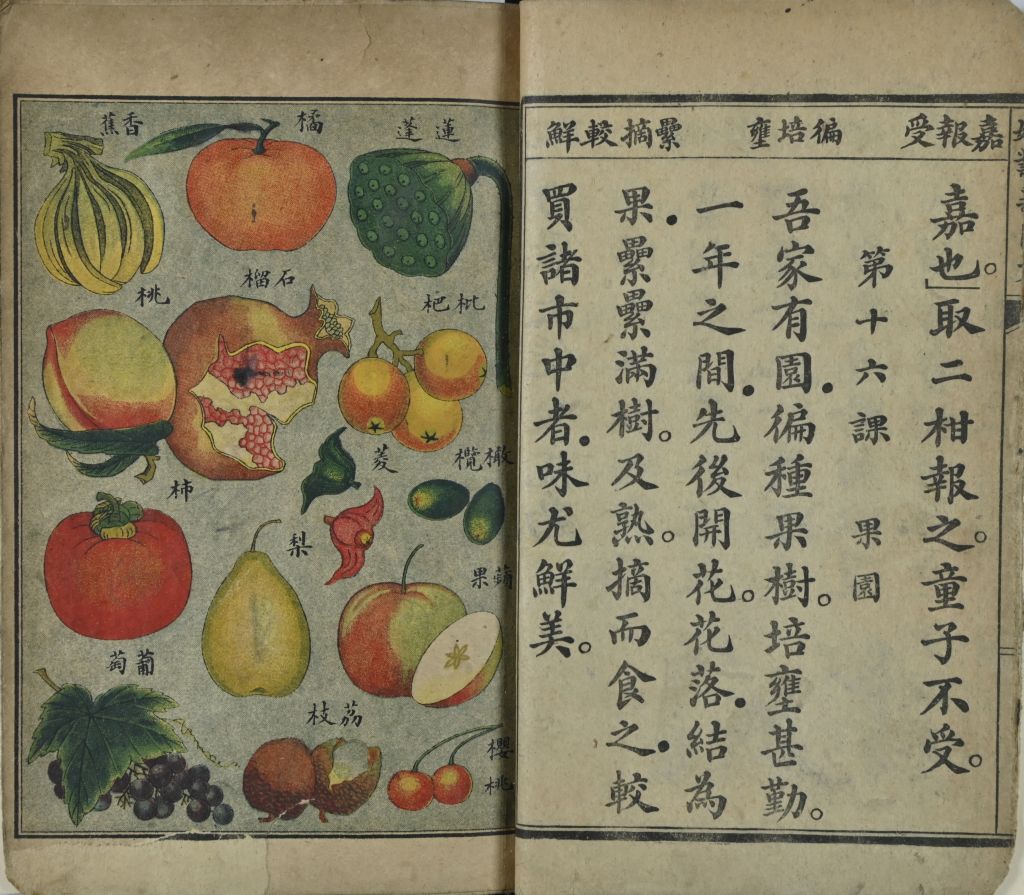 嘉報受
徧培壅
纍摘較鮮
嘉也。」取二柑報之。童子不受。
第十六課 果園
吾家有園．徧種果樹。培壅甚勤。
一年之間．先後開花。花落．結為
果．纍纍滿樹。及熟。摘而食之．較
買諸市中者．味尤鮮美。
蓮蓬
橘
香蕉
枇杷
石榴
桃
橄欖
菱
柿
蘋果
梨
葡萄
荔枝
櫻桃